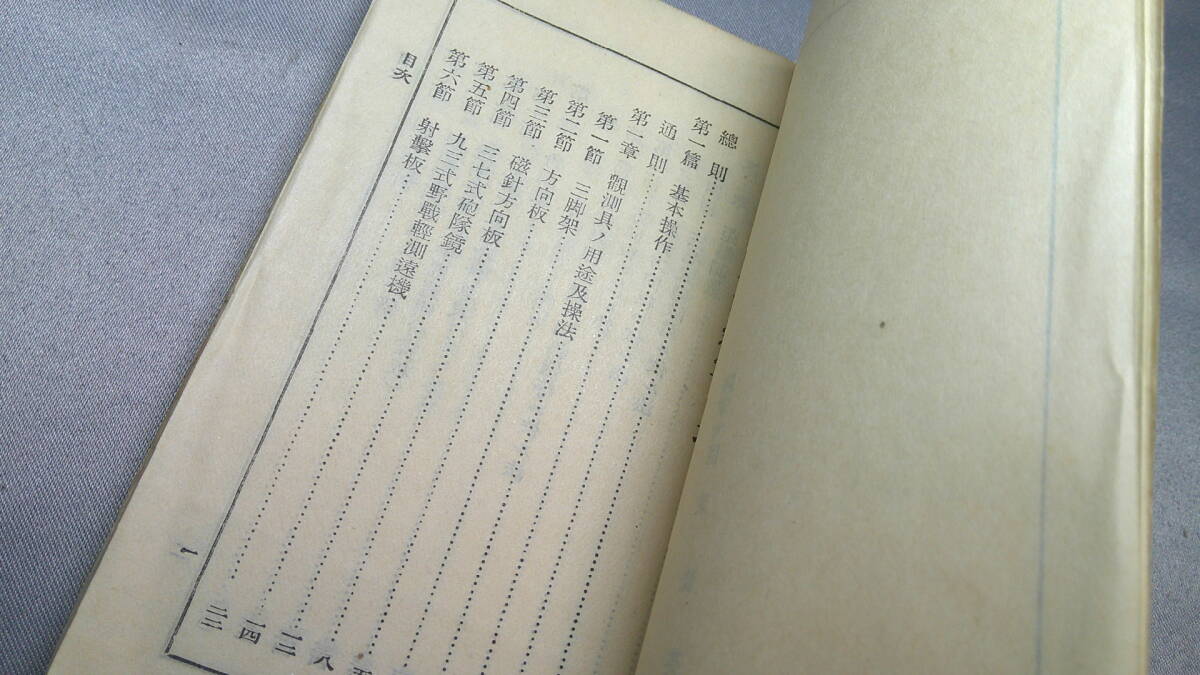 總則
第一篇 基本操作
通則
第一章 觀測具ノ用途及操法
第一節 三脚架
第二節 方向板……五
第三節 磁針方向板……八
第四節 三七式砲隊鏡……一二
第五節 九三式野戰輕測遠機……一四
第六節 射擊板……二二
目次 一